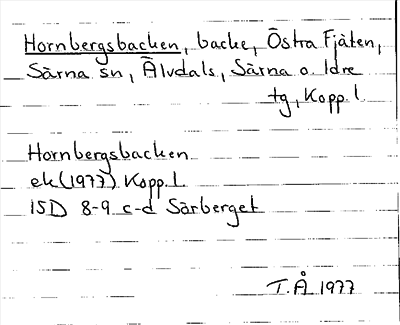 Hornbergsbacken, backe, Östra Fjäten,
Särna sn, Älvdals, Särna o. Idre
tg, Kopp. l.
Hornbergsbacken
ek(1977) Kopp. l.
15D 8-9 c-d Särberget
T.Å 1977